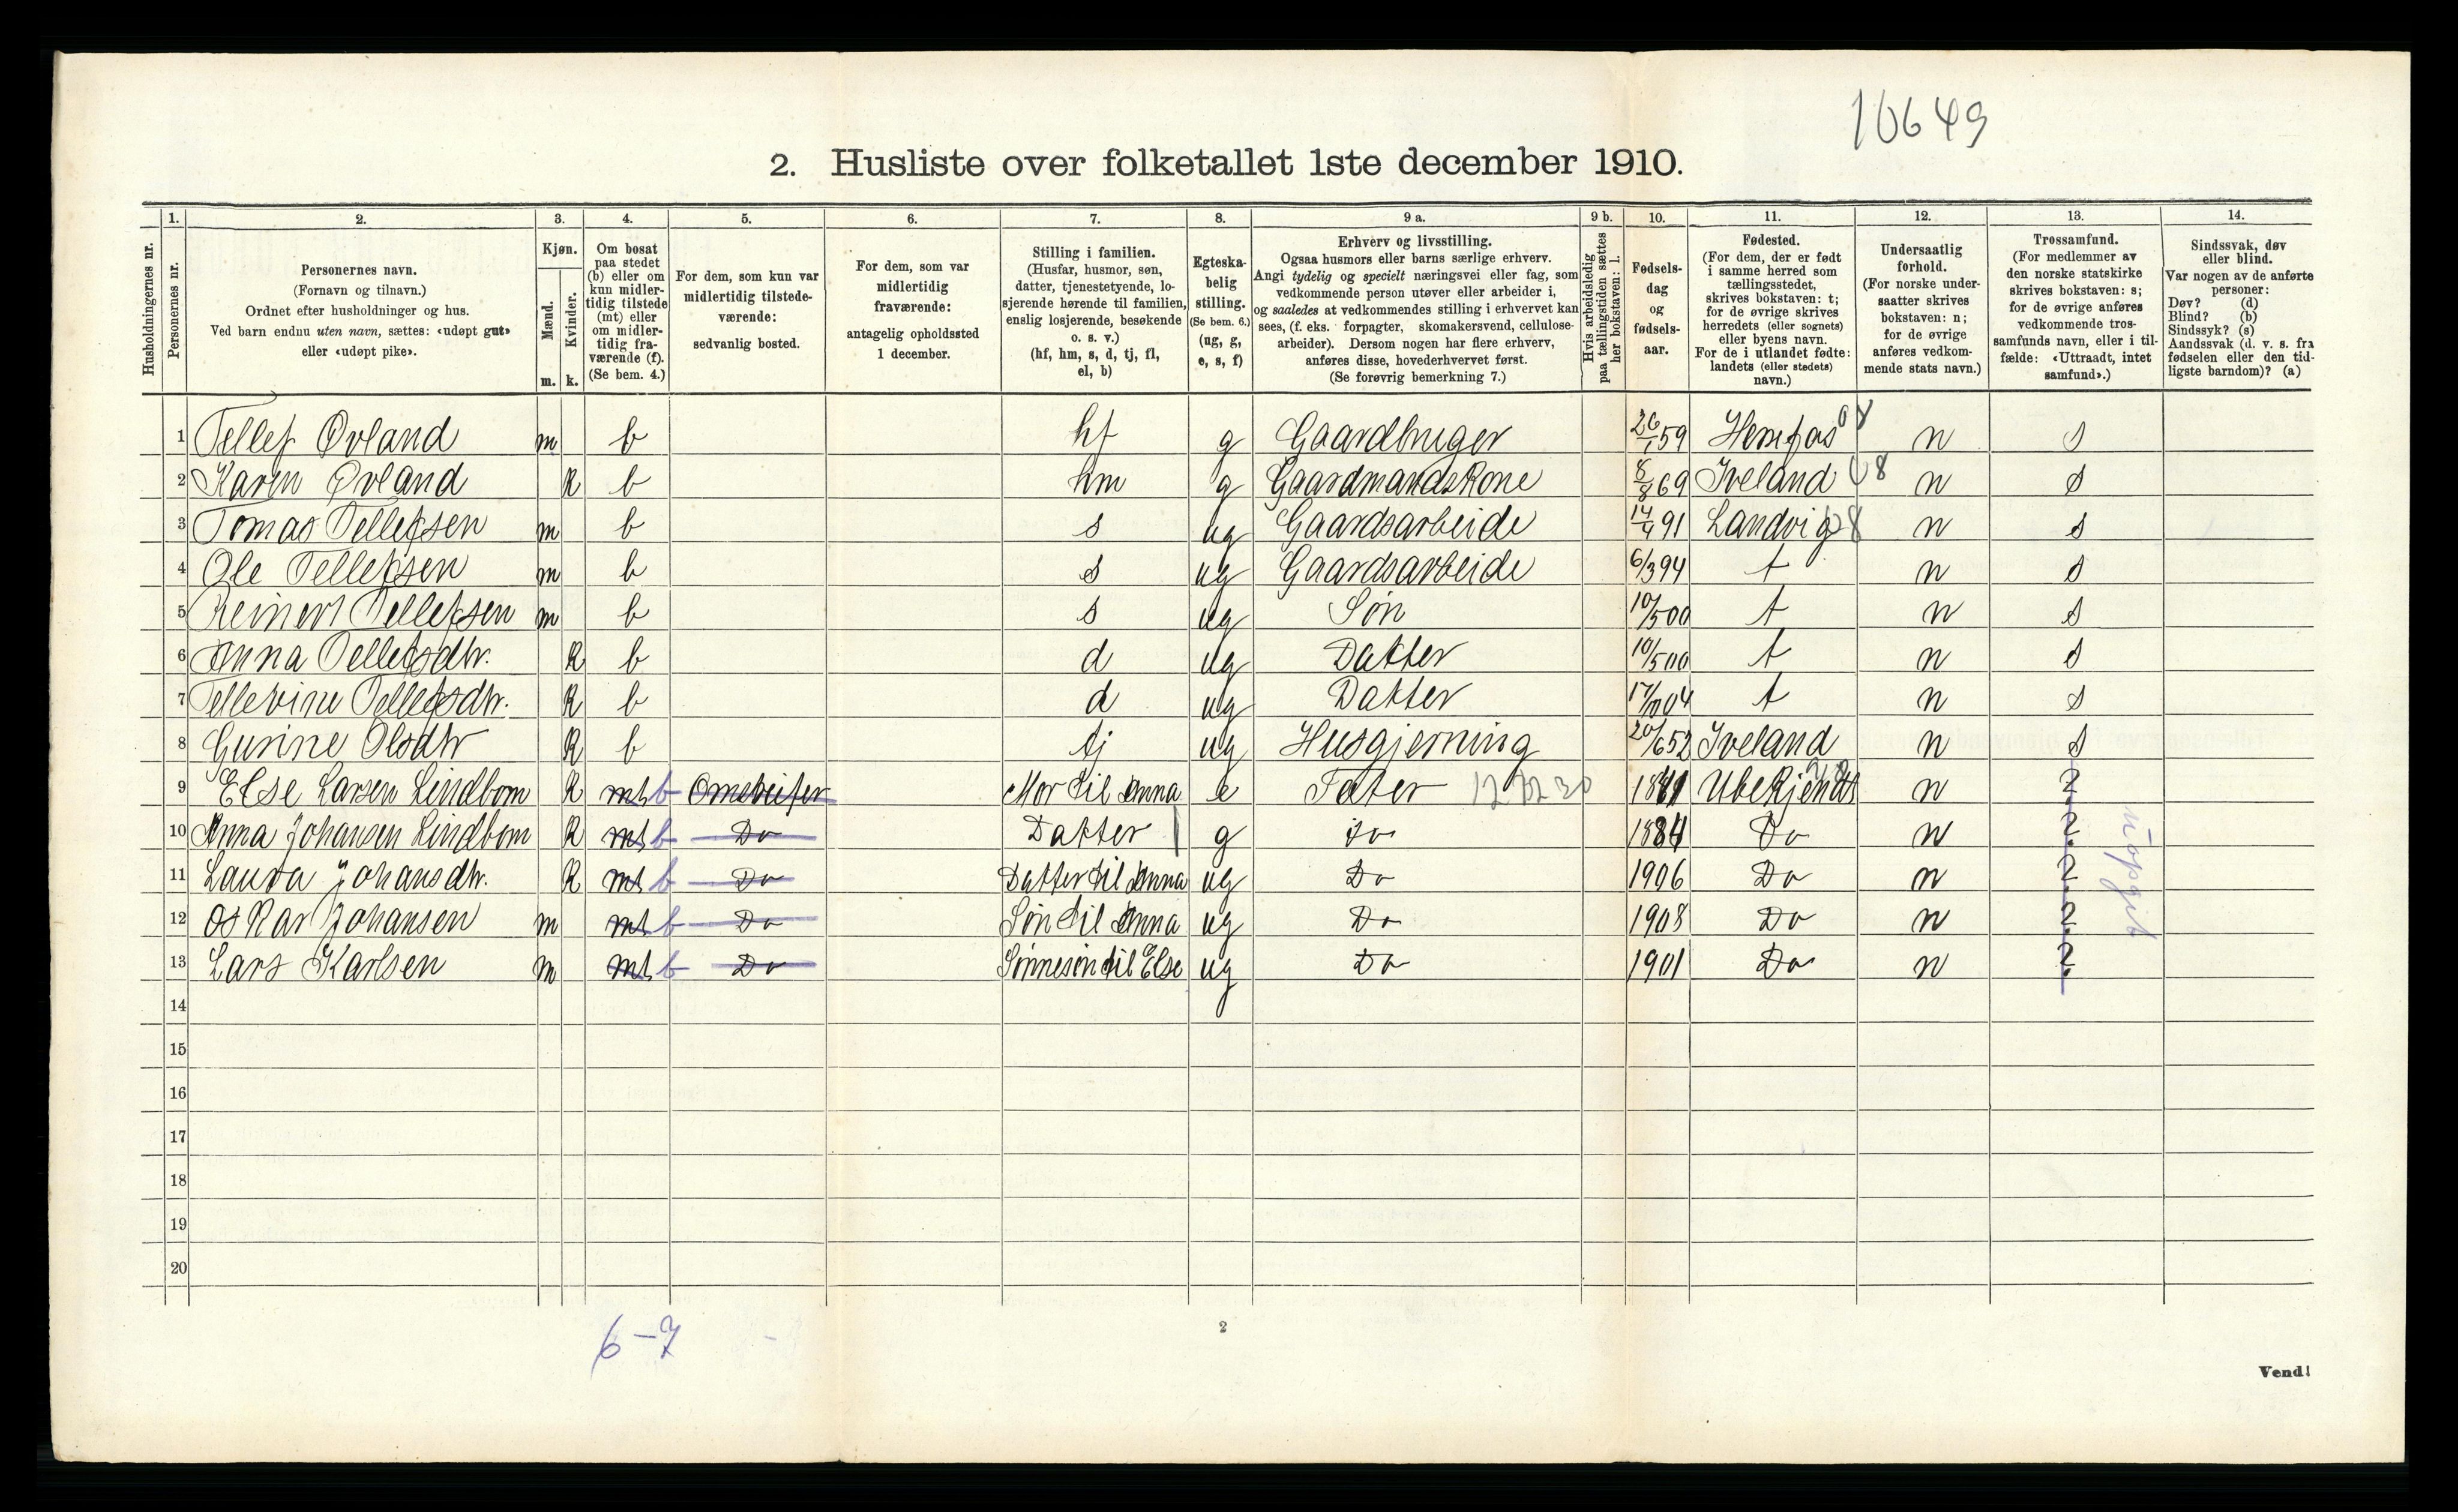 10649
2. Husliste over folketallet 1ste december 1910.
1. 2. 3. 4. 5. 6. 7. 8. 9 a. 9 b. 10. 11. 12. 13. 14.
Husholdningernes nr.
Personernes nr.
Personernes navn.
(Fornavn og tilnavn.)
Ordnet efter husholdninger og hus.
Ved barn endnu uten navn, sættes: «udøpt gut»
eller «udøpt pike».
Kjøn.
Mænd.
Kvinder.
m. k.
Om bosat
paa stedet
(b) eller om
kun midler-
tidig tilstede
(mt) eller
om midler-
tidig fra-
værende (f).
(Se bem. 4.)
For dem, som kun var
midlertidig tilstede-
værende:
sedvanlig bosted.
For dem, som var
midlertidig
fraværende:
antagelig opholdssted
1 december.
Stilling i familien.
(Husfar, husmor, søn,
datter, tjenestetyende, lo-
sjerende hørende til familien,
enslig losjerende, besøkende
o. s. v.)
(hf, hm, s, d, tj, fl,
el, b)
Egteska-
belig
stilling.
(Se bem. 6.)
(ug, g,
e, s, f)
Erhverv og livsstilling.
Ogsaa husmors eller barns særlige erhverv.
Angi tydelig og specielt næringsvei eller fag, som
vedkommende person utøver eller arbeider i,
og saaledes at vedkommendes stilling i erhvervet kan
sees, (f. eks. forpagter, skomakersvend, cellulose-
arbeider). Dersom nogen har flere erhverv,
anføres disse, hovederhvervet først.
(Se forøvrig bemerkning 7.)
Hvis arbeidsledig
paa tællingstiden sættes
her bokstaven: l.
Fødsels-
dag
og
fødsels-
aar.
Fødested.
(For dem, der er født
i samme herred som
tællingsstedet,
skrives bokstaven: t;
for de øvrige skrives
herredets (eller sognets)
eller byens navn.
For de i utlandet fødte:
landets (eller stedets)
navn.)
Undersaatlig
forhold.
(For norske under-
saatter skrives
bokstaven: n;
for de øvrige
anføres vedkom-
mende stats navn.)
Trossamfund.
(For medlemmer av
den norske statskirke
skrives bokstaven: s;
for de øvrige anføres
vedkommende tros-
samfunds navn, eller i til-
fælde: «Uttraadt, intet
samfund».)
Sindssvak, døv
eller blind.
Var nogen av de anførte
personer:
Døv? (d)
Blind? (b)
Sindssyk? (s)
Aandssvak (d. v. s. fra
fødselen eller den tid-
ligste barndom)? (a)
1 Tellef Øvland m b hf g Gaardbruger 26/1 59 n s
2 Karen Øvland k b hm g Gaardmandskone 8/8 69 Iveland 08 n s
3 Tomas Tellefsen m b s ug Gaardsarbeide 14/4 91 Landvig 08 n s
4 Ole Tellefsen m b s ug Gaardsarbeide 6/3 94 t n s
5 Reinert Tellefsen m b s ug Søn 10/5 00 t n s
6 Anna Tellefsdtr. k b d ug Datter 10/5 00 t n s
7 Tellevine Tellefsdtr. k b d ug Datter 17/10 04 t n s
8 Gurine Olsdtr k b tj ug Husgjerning 20/6 52 Iveland n s
9 Else Larsen Lindbom k mt b Omstreifer Mor til Anna e Fater Ubekjendt n ?
10 Anna Johansen Lindbom k mt b Do Datter g Do 1884 Do n ?
11 Laura Johansdtr. k mt b Do Datter til Anna ug Do 1906 Do n ?
12 Oskar Johansen m mt b Do Søn til Anna ug Do 1908 Do n ?
13 Lars Karlsen m mt b Do Sønnesøn til Else ug Do 1901 Do n ?
uopgit
14
15
16
17
18
19
20
6-7
2
Vend!